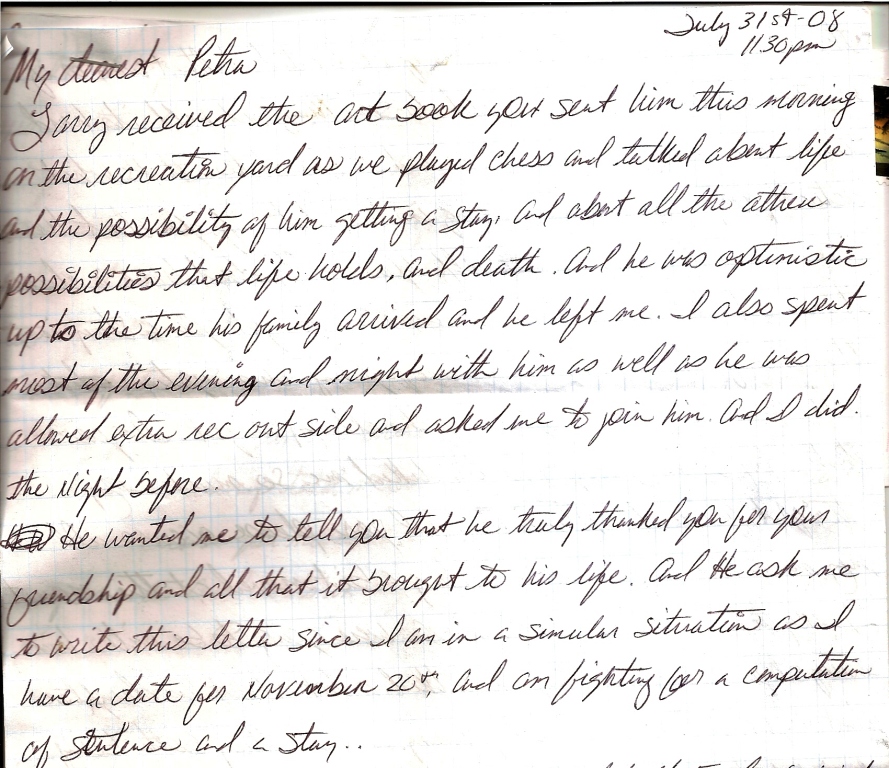 July 31st-08
1130pm
My dearest Petra
Larry received the art book you sent him this morning
on the recreation yard as we played chess and talked about life
and the possibility of him getting a stay, and about all the other
possibilities that life holds, and death. And he was optimistic
up to the time his family arrived and he left me. I also spent
most of the evening and night with him as well as he was
allowed extra rec out side and asked me to join him. And I did.
the night before.
He wanted me to tell you that he truly thanked you for your
friendship and all that it brought to his life. And He ask me
to write this letter since I am in a simular situation as I
have a date for November 20th, and am fighting for a computation
of sentence and a stay..